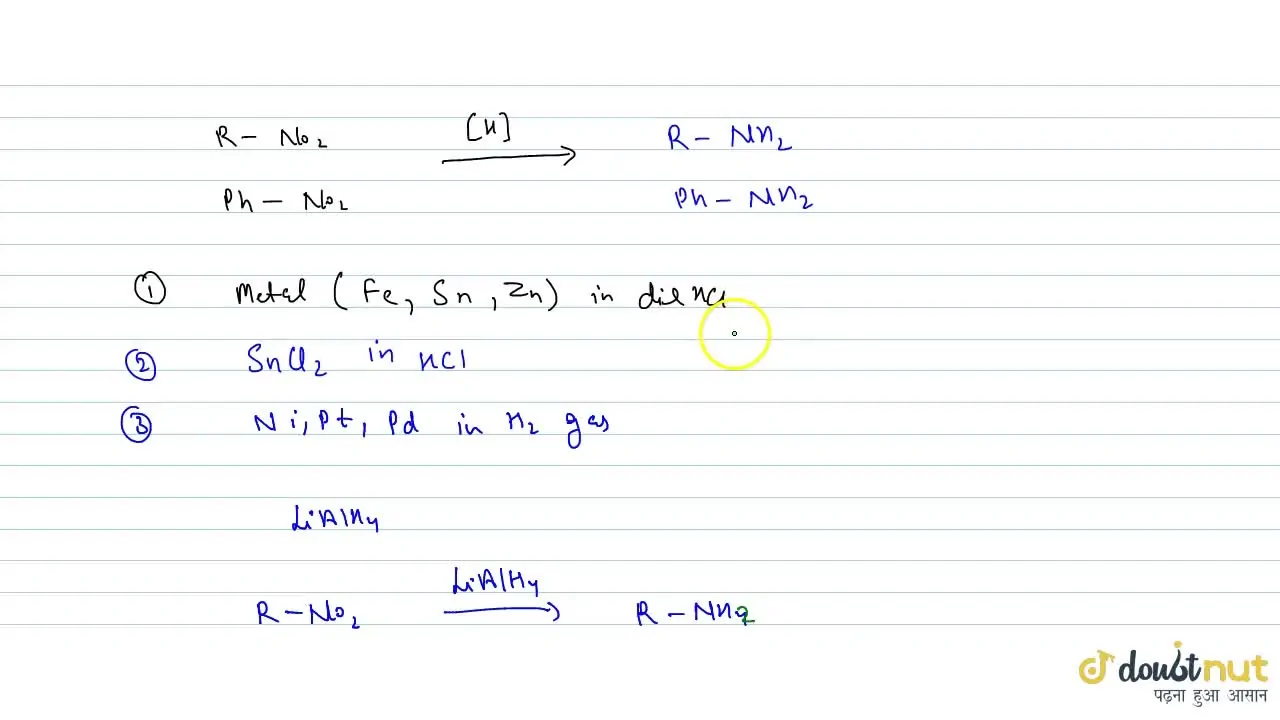 R — NO2 [H] R — NH2
Ph — NO2 Ph — NH2
① Metal (Fe, Sn, Zn) in dil HCl
② SnCl2 in HCl
③ Ni, Pt, Pd in H2 gas
LiAlH4
R — NO2 LiAlH4 R — NH2
doubtnut
पढ़ना हुआ आसान